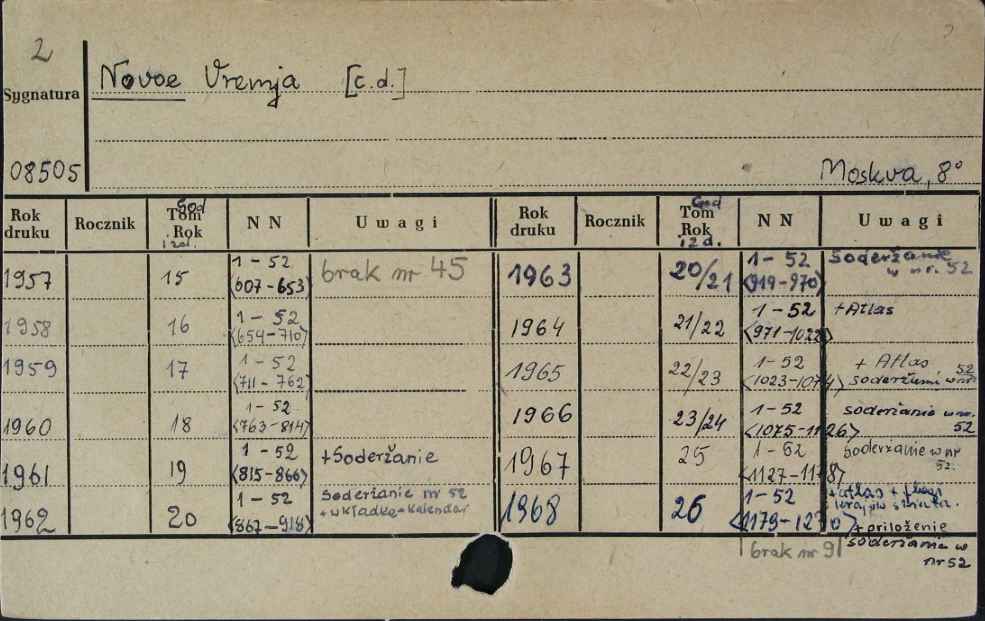 2
Novoe Vremja [c.d.]
Sygnatura
08505
Moskva, 8°
Rok druku Rocznik God Tom Rok izd. NN Uwagi Rok druku Rocznik God Tom Rok izd. NN Uwagi
1957 15 1-52 <607-653> brak nr 45 1963 20/21 1-52 <919-970> Soderžanie w nr. 52
1958 16 1-52 <654-710> 1964 21/22 1-52 <971-1022> +Atlas
1959 17 1-52 <711-762> 1965 22/23 1-52 <1023-1074> + Atlas soderžanie w nr 52
1960 18 1-52 <763-814> 1966 23/24 1-52 <1075-1126> soderžanie w nr. 52
1961 19 1-52 <815-866> +Soderžanie 1967 25 1-52 <1127-1178> Soderžanie w nr 52.
1962 20 1-52 <867-918> Soderžanie nr 52 +wkładka-Kalendar 1968 26 1-52 <1179-1230> +atlas + flagi krajów
+priloženie
brak nr 9 soderžanie w
nr 52